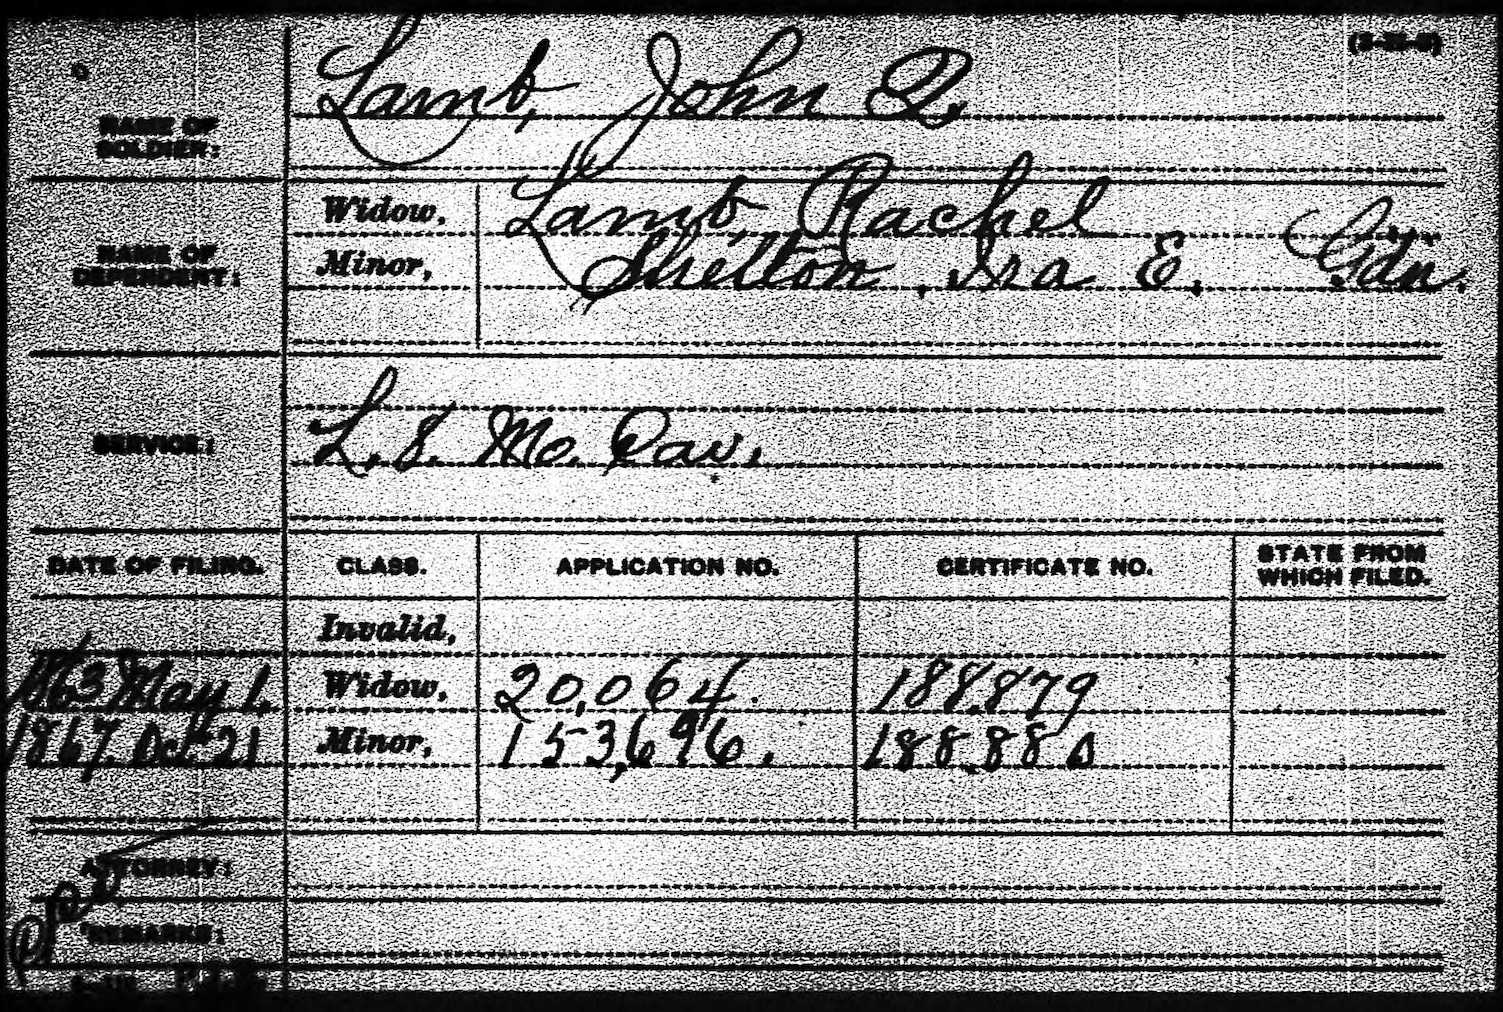 (3-22-5)
NAME OF SOLDIER: Lamb, John Q.
NAME OF DEPENDENT:
Widow, Lamb, Rachel
Minor, Shelton, Isa E. Gdn.
SERVICE: L. 8. Mo. Cav.
DATE OF FILING. CLASS. APPLICATION NO. CERTIFICATE NO. STATE FROM WHICH FILED.
Invalid,
1863 May 1. Widow, 20,064. 188.879
1867. Oct 21 Minor, 153,696. 188.880
ATTORNEY:
REMARKS: